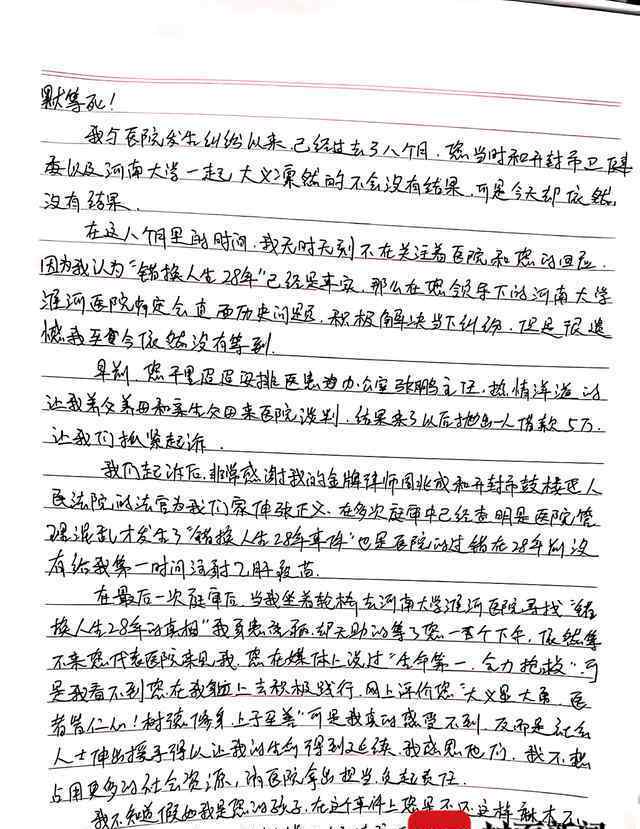 默等死！
我与医院发生纠纷以来，已经过去了八个月，您当时和开封市卫健
委以及河南大学一起大义凛然的不会没有结果，可是今天却依然
没有结果。
在这八个月里的时间，我无时无刻不在关注着医院和您的回应，
因为我认为“错换人生28年”已经是事实，那么在您领导下的河南大学
淮河医院肯定会直面历史问题，积极解决当下纠纷，但是很遗
憾我至今依然没有等到。
早前，您千里迢迢安排医患办公室张鹏主任，热情洋溢的
让我养父养母和亲生父母来医院谈判，结果来了以后抛出一人借款5万，
让我们抓紧起诉。
我们起诉后，非常感谢我的金牌律师周兆成和开封市鼓楼区人
民法院的法官为我们家伸张正义，在多次庭审中已经查明是医院管
理混乱才发生了“错换人生28年事件”也是医院的过错在28年前没
有给我第一时间注射乙肝疫苗。
在最后一次庭审后，当我坐着轮椅去河南大学淮河医院寻找“错
换人生28年的真相”我身患绝症，却无助的等了您一个下午，依然等
不来您代表医院来见我，您在媒体上说过“生命第一，全力抢救”，可
是我看不到您在我身上去积极践行，网上评价您“大义显大勇，医
者皆仁心！树德修身上于至善”可是我真的感受不到，反而是社会
人士伸出援手得以让我的生命得到延续，我感恩他们，我不想
占用更多的社会资源，请医院拿出担当，负起责任。
我不知道假如我是您的孩子，在这个事件上您是不是这样麻木不